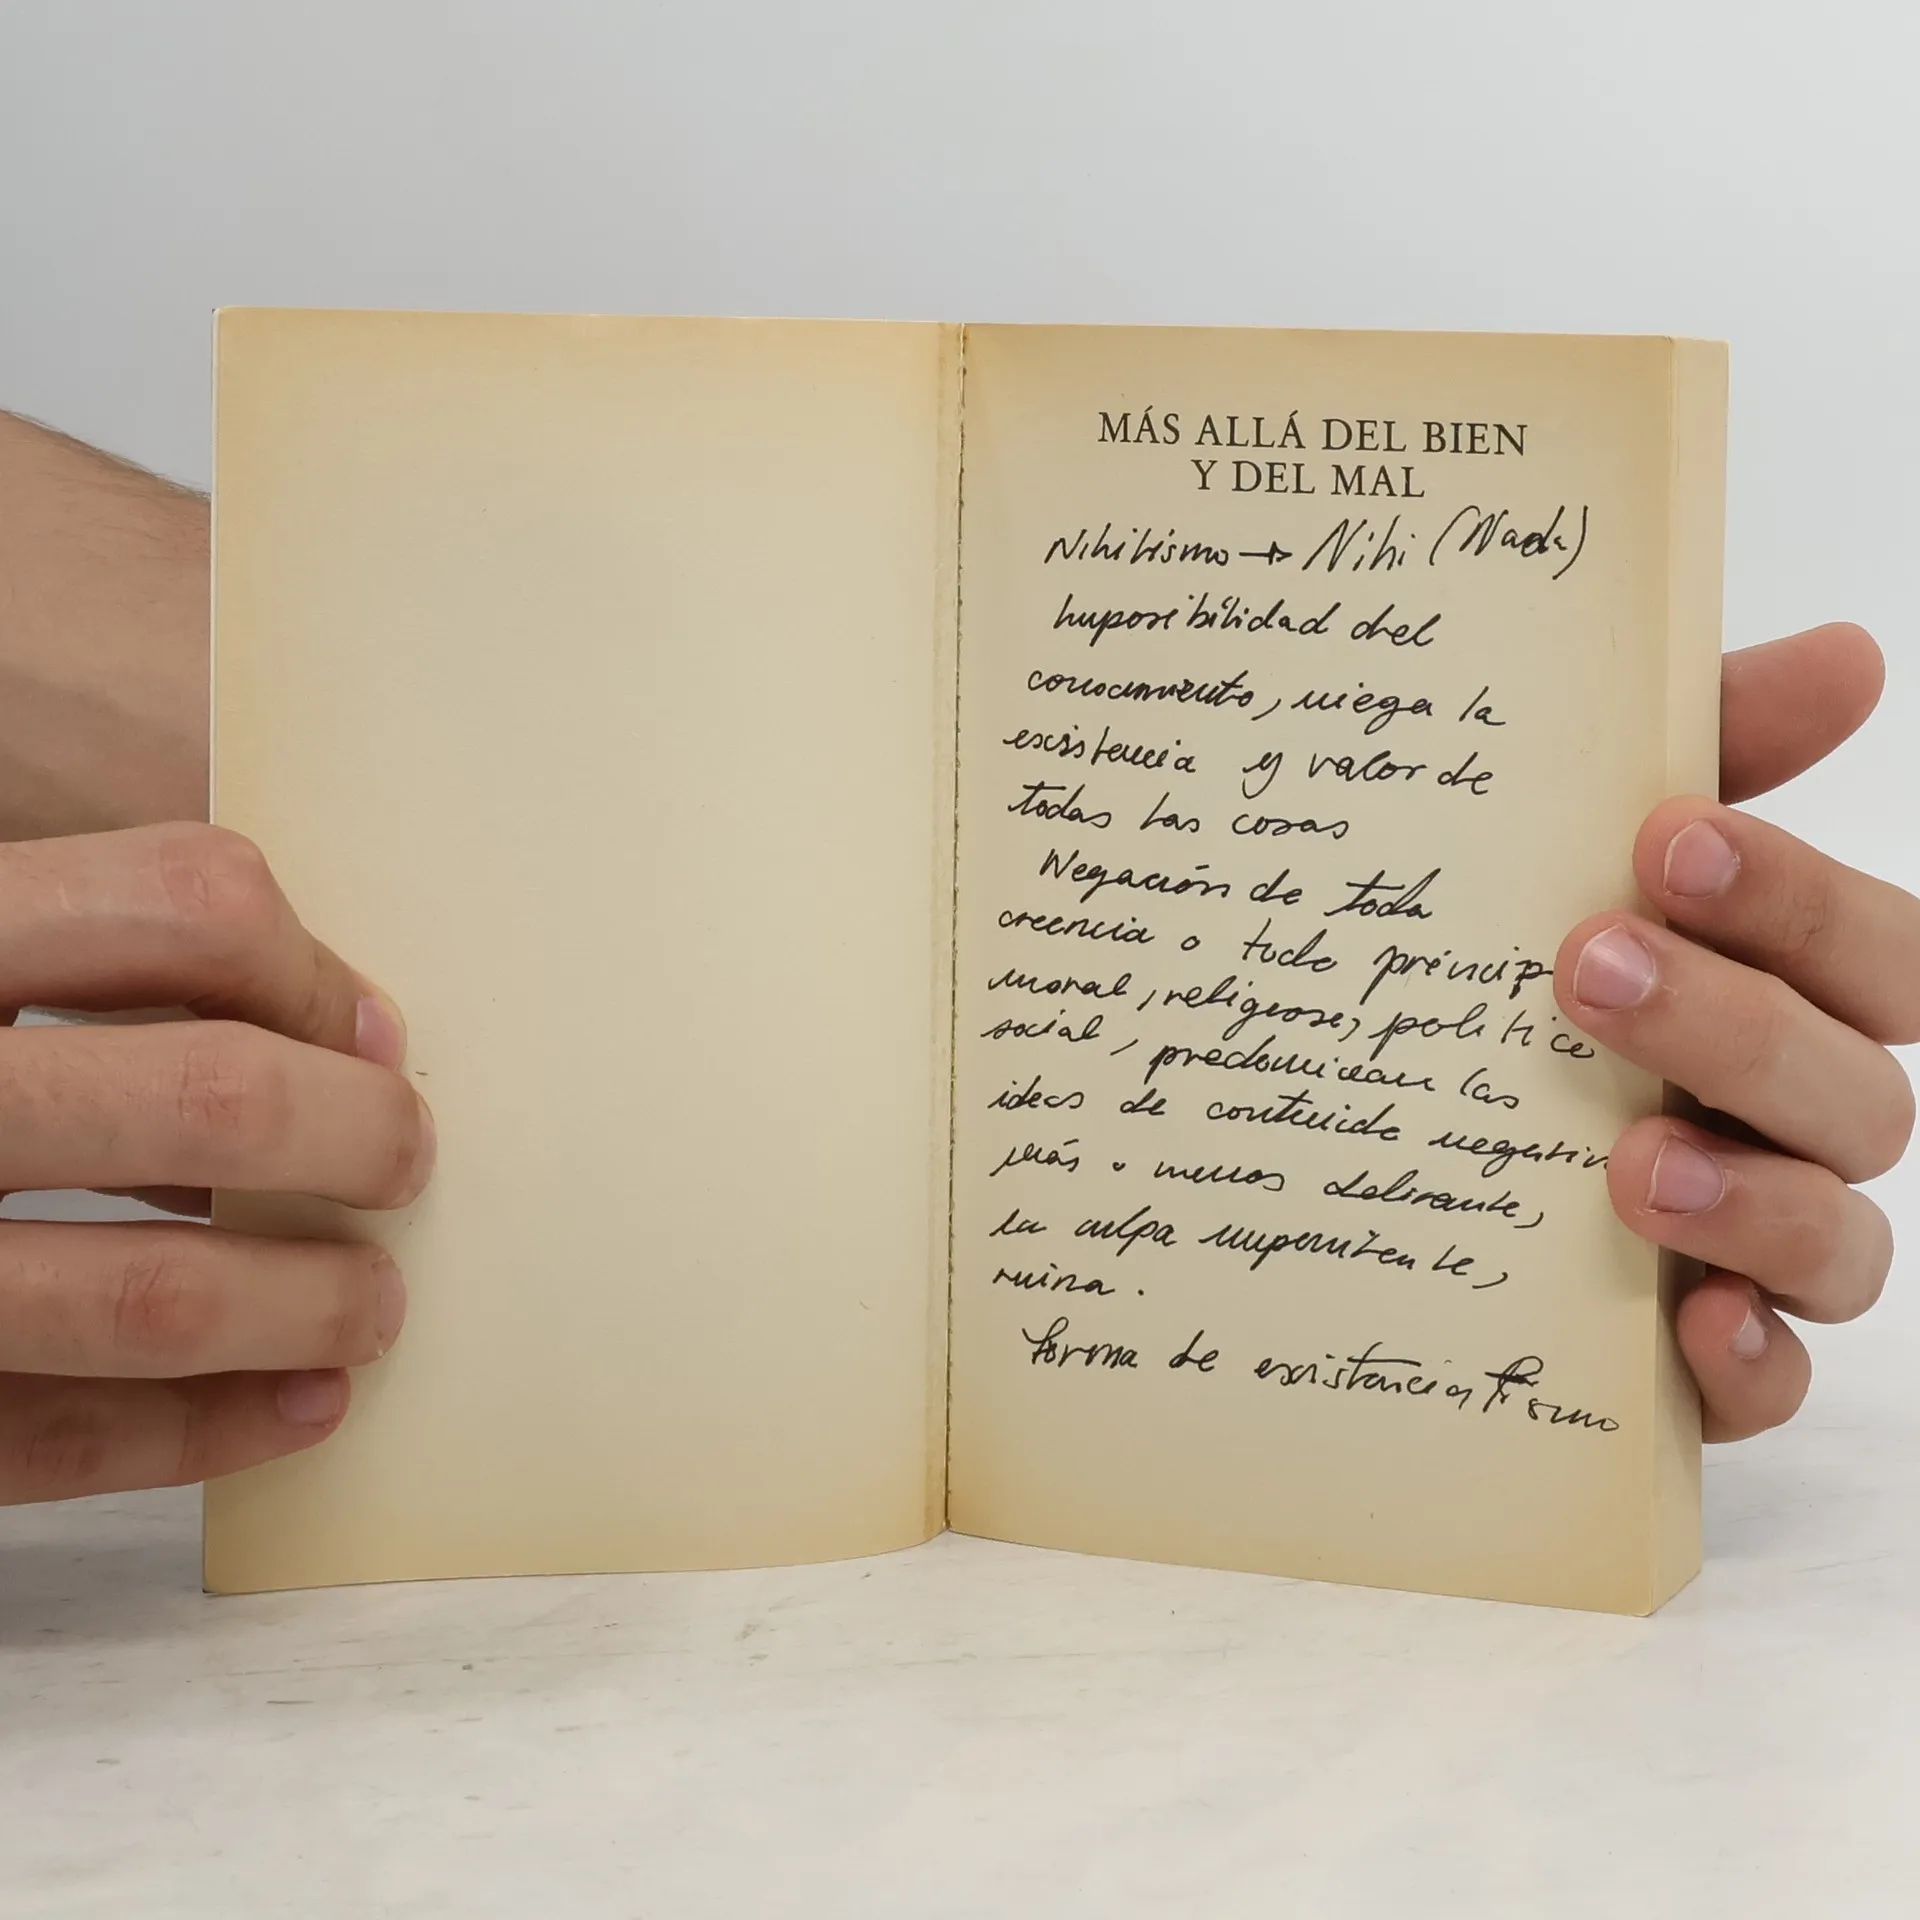 MÁS ALLÁ DEL BIEN
Y DEL MAL
Nihilismo → Nihi (Nada)
Imposibilidad del
conocimiento, niega la
existencia y valor de
todas las cosas
Negación de toda
creencia o todo princip
moral, religioso, político
social, predominan las
ideas de contenido negativ
más o menos delirante,
la culpa impenitente,
ruina.
forma de existencia